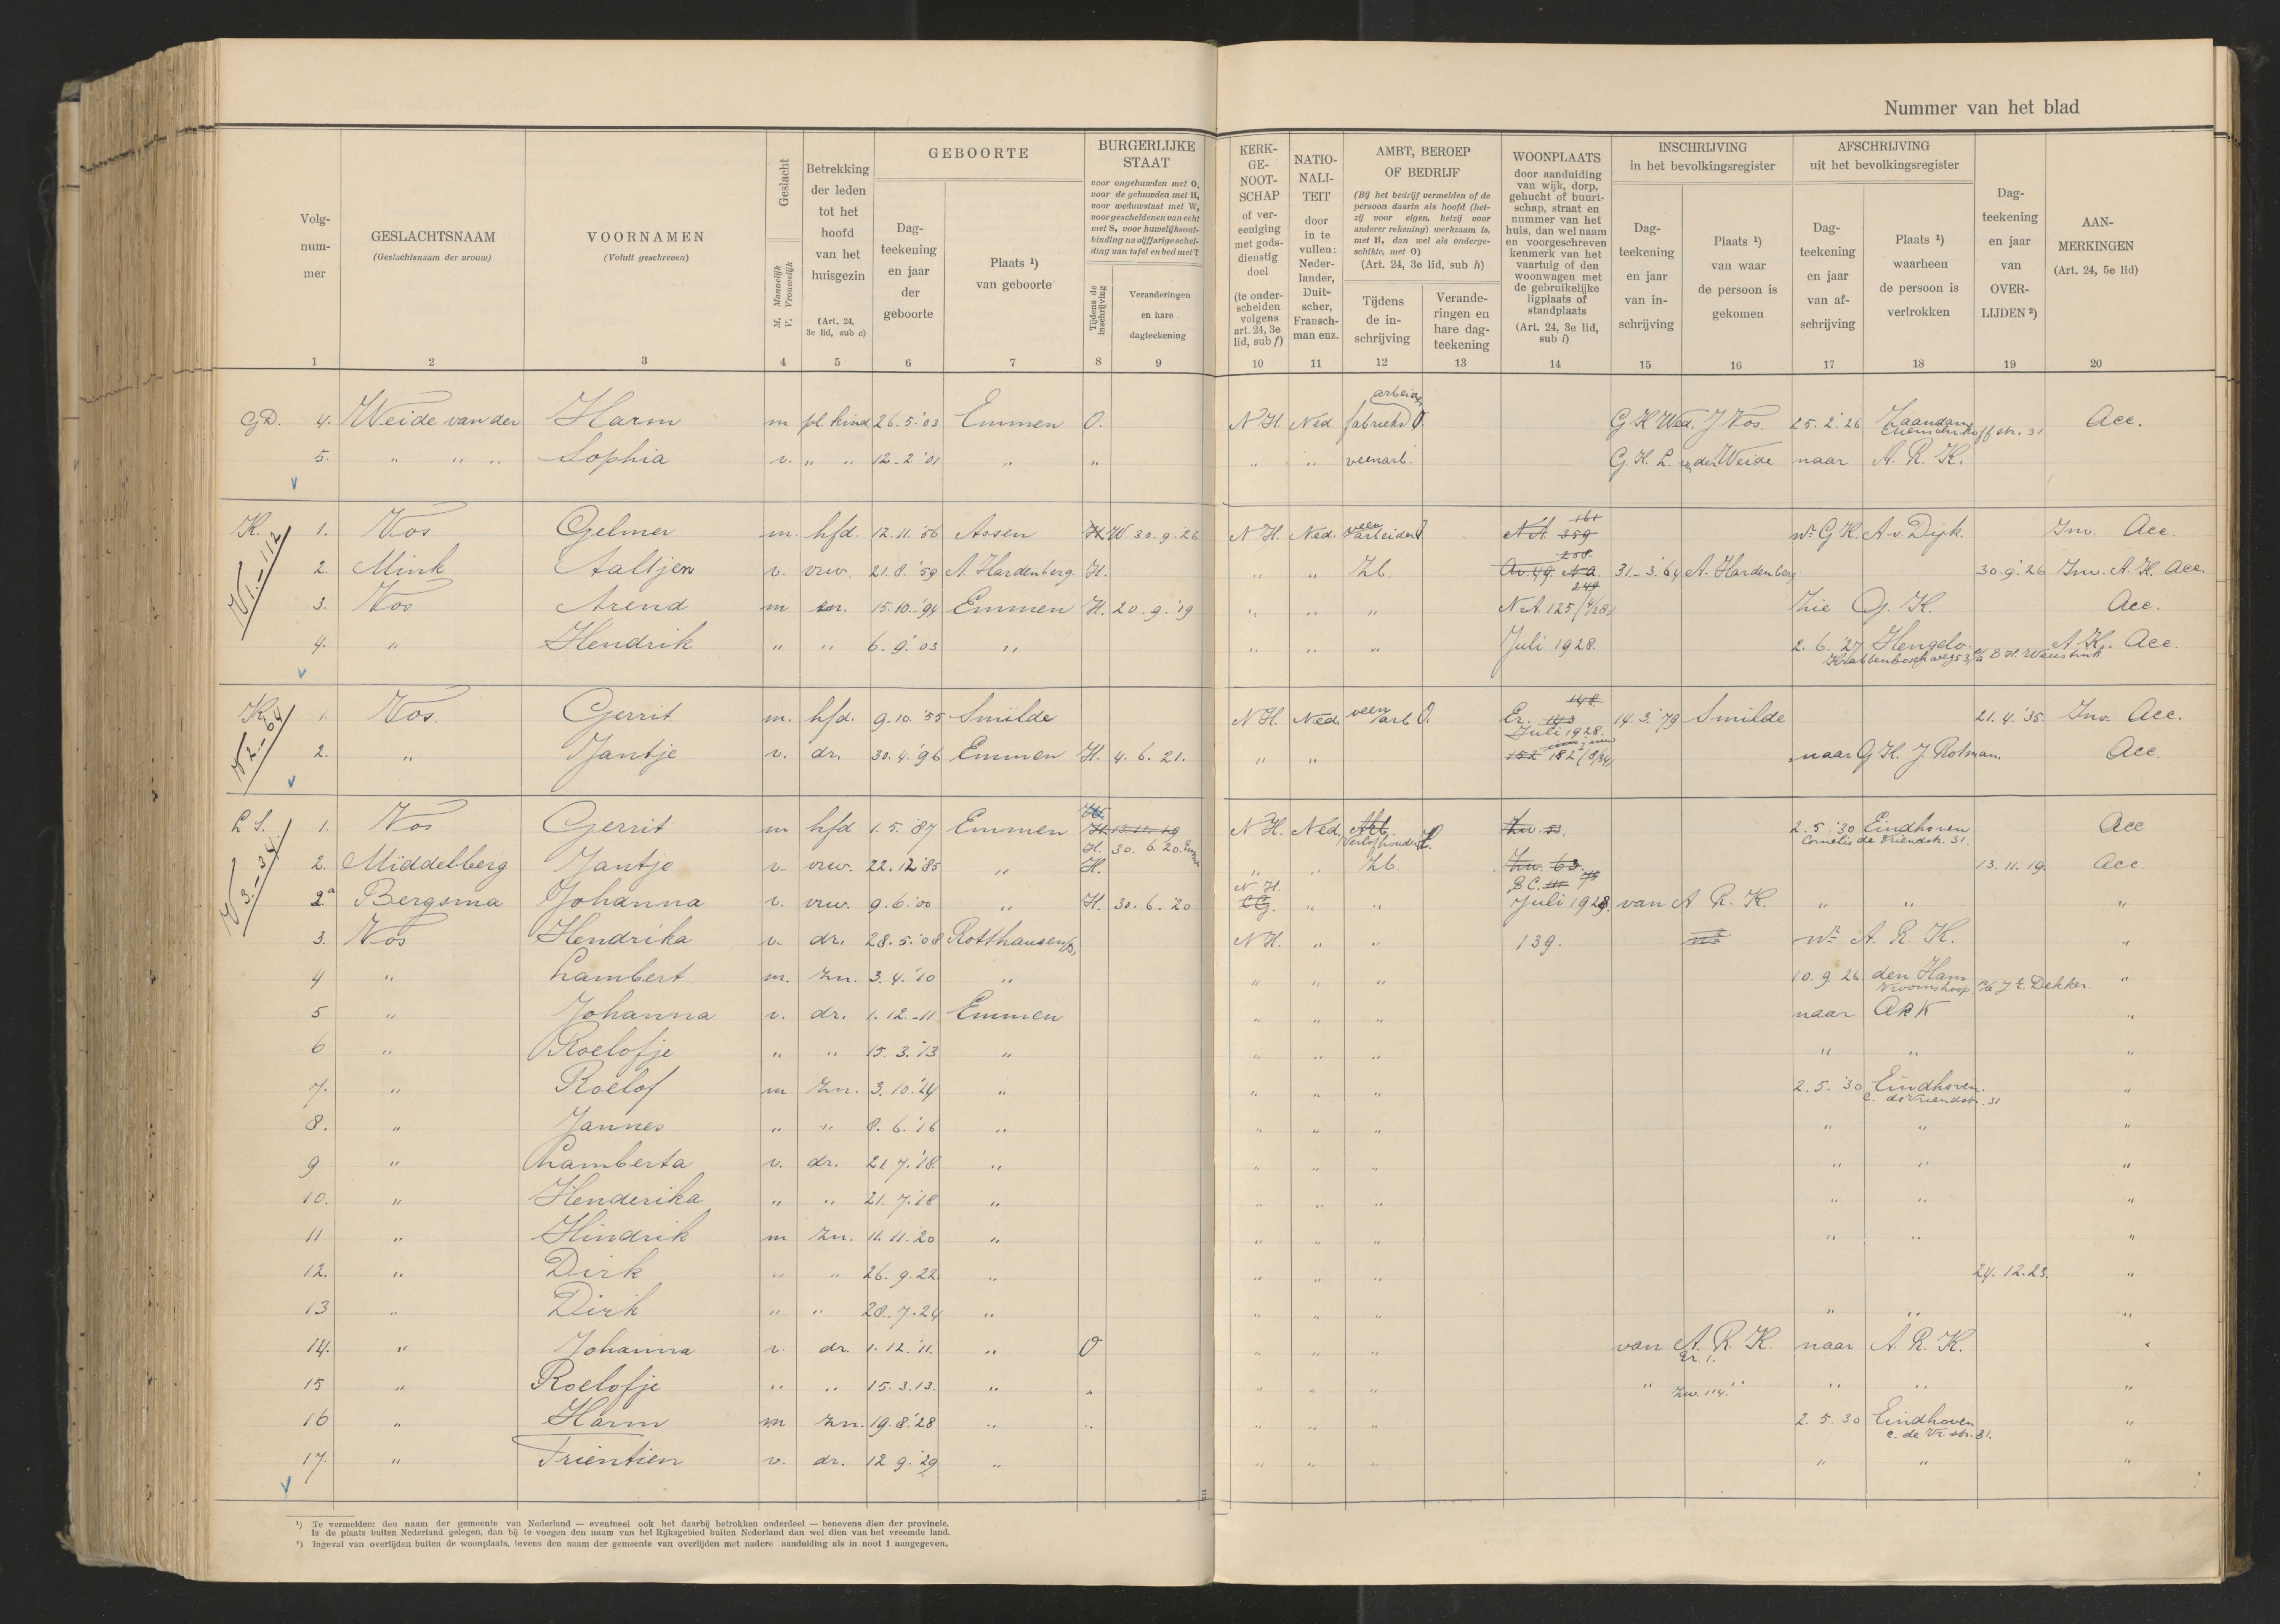 Nummer van het blad
Volg-
num-
mer
GESLACHTSNAAM
(Geslachtsnaam der vrouw)
VOORNAMEN
(Voluit geschreven)
Geslacht
M. Mannelijk
V. Vrouwelijk
Betrekking
der leden
tot het
hoofd
van het
huisgezin
(Art. 24,
3e lid, sub c)
GEBOORTE
Dag-
teekening
en jaar
der
geboorte
Plaats ¹)
van geboorte
BURGERLIJKE
STAAT
voor ongehuwden met O,
voor de gehuwden met H,
voor weduwstaat met W,
voor gescheidenen van echt
met S, voor huwelijksont-
binding na vijfjarige schei-
ding van tafel en bed met T
Tijdens de
inschrijving
Veranderingen
en hare
dagteekening
KERK-
GE-
NOOT-
SCHAP
of ver-
eeniging
met gods-
dienstig
doel
(te onder-
scheiden
volgens
art. 24, 3e
lid, sub f)
NATIO-
NALI-
TEIT
door
in te
vullen:
Neder-
lander,
Duit-
scher,
Fransch-
man enz.
AMBT, BEROEP
OF BEDRIJF
(Bij het bedrijf vermelden of de
persoon daarin als hoofd (het-
zij voor eigen, hetzij voor
anderer rekening) werkzaam is,
met H, dan wel als onderge-
schikte, met O)
(Art. 24, 3e lid, sub h)
Tijdens
de in-
schrijving
Verande-
ringen en
hare dag-
teekening
WOONPLAATS
door aanduiding
van wijk, dorp,
gehucht of buurt-
schap, straat en
nummer van het
huis, dan wel naam
en voorgeschreven
kenmerk van het
vaartuig of den
woonwagen met
de gebruikelijke
ligplaats of
standplaats
(Art. 24, 3e lid,
sub i)
INSCHRIJVING
in het bevolkingsregister
Dag-
teekening
en jaar
van in-
schrijving
Plaats ¹)
van waar
de persoon is
gekomen
AFSCHRIJVING
uit het bevolkingsregister
Dag-
teekening
en jaar
van af-
schrijving
Plaats ¹)
waarheen
de persoon is
vertrokken
Dag-
teekening
en jaar
van
OVER-
LIJDEN ²)
AAN-
MERKINGEN
(Art. 24, 5e lid)
1 2 3 4 5 6 7 8 9 10 11 12 13 14 15 16 17 18 19 20
G.D. 4. Weide van der Harm m pl. kind 26.5.'03 Emmen O. N.H. Ned. fabrieks arbeider O. G.K. Wed. J. Vos. 25.2.'26 Zaandam str. 31 Acc.
5. " " " Sophia v. " " 12-2-'01 " " " " veenarb. G.K. L. v. der Weide naar A.R.K.
K. V1-112 1. Vos Gelmer m. hfd. 12.11.'56 Assen H W. 30.9.'26 N.H. Ned. veen arbeider O. N.A. 359 161 nr. G.K. A. v. Dijk. Inv. Acc.
2. Mink Aaltjen v. vrw. 21.8.'59 A. Hardenberg. H. " " Zb. Av. 49. N.A. 208. 31-3.'64 A. Hardenberg 30.9.'26 Inv. A.K. Acc.
3. Vos Arend m zn. 15.10.-'94 Emmen H. 20.9.'19 " " " 249 N.A. 125 (4/28) Zie G.K. Acc.
4. " Hendrik " " 6.9.'03 " " " " Juli 1928. 2.6.'27 Hengelo A.K. Acc.
K. V2-64 1. Vos. Gerrit m. hfd. 9.10.'55 Smilde N.H. Ned. veen arb O. Er. 143 148. 14.3.'79 Smilde 21.4.'35. Inv. Acc.
Juli 1928.
2. " Jantje v. dr. 30.4.'96 Emmen H. 4.6.21. " " 152 182 (8/34) naar G.K. J. Rotman. Acc.
L.S. V3-34 1. Vos Gerrit m hfd 1.5.'87 Emmen W. H. 13.11.19 N.H. Ned. Arb. Verlofhouder H. Zw. 53. 2.5.'30 Eindhoven Acc
H. 30.6.20. Cornelis de Vriendstr. 31.
2. Middelberg Jantje v. vrw. 22.12'85 " H. " " Zb. Zw. 63. 13.11.19. Acc.
2a Bergsma Johanna v. vrw. 9.6.'00 " H. 30.6.'20 N.H. C.G. " " B.C. 75 Juli 1928. van A.R.K. " " "
3. Vos Hendrika v. dr. 28.5.'08 Rotthausen N.H. " " 139. nr. A.R.K. "
4 " Lambert m. zn. 3.4.'10 " " " " 10.9.26. den Ham Vroomshoop. p/a J. E. Dekker. "
5 " Johanna v. dr. 1.12.-11 Emmen " " " naar ARK "
6 " Roelofje " " 15.3.'13 " " " " " " "
7. " Roelof m zn. 3.10.'24 " " " " 2.5.'30 Eindhoven. "
C. de Vriendstr. 31
8. " Jannes " " 8.6.'16 " " " " " " "
9 " Lamberta v. dr. 21.7.'18. " " " " " " "
10. " Henderika " " 21.7.'18 " " " " " " "
11 " Hindrik m zn. 11.11.'20 " " " " " " "
12. " Dirk " " 26.9.22. " " " " 24.12.23. "
13 " Dirk " " 28.7.24 " " " " " " "
14. " Johanna v. dr. 1.12.'11. " O " " " van A.R.K. naar A.R.K. "
Er 1.
15 " Roelofje " " 15.3.13. " " " " " " Zw. 114. " " " "
16 " Harm m zn. 19.8.'28 " " " " " 2.5.30 Eindhoven "
C. de Vr. str. 31.
17. " Trientien v. dr. 12.9.'29 " " " " " " "
¹) Te vermelden: den naam der gemeente van Nederland — eventueel ook het daarbij betrokken onderdeel — benevens dien der provincie.
Is de plaats buiten Nederland gelegen, dan bij te voegen den naam van het Rijksgebied buiten Nederland dan wel dien van het vreemde land.
²) Ingeval van overlijden buiten de woonplaats, tevens den naam der gemeente van overlijden met nadere aanduiding als in noot 1 aangegeven.